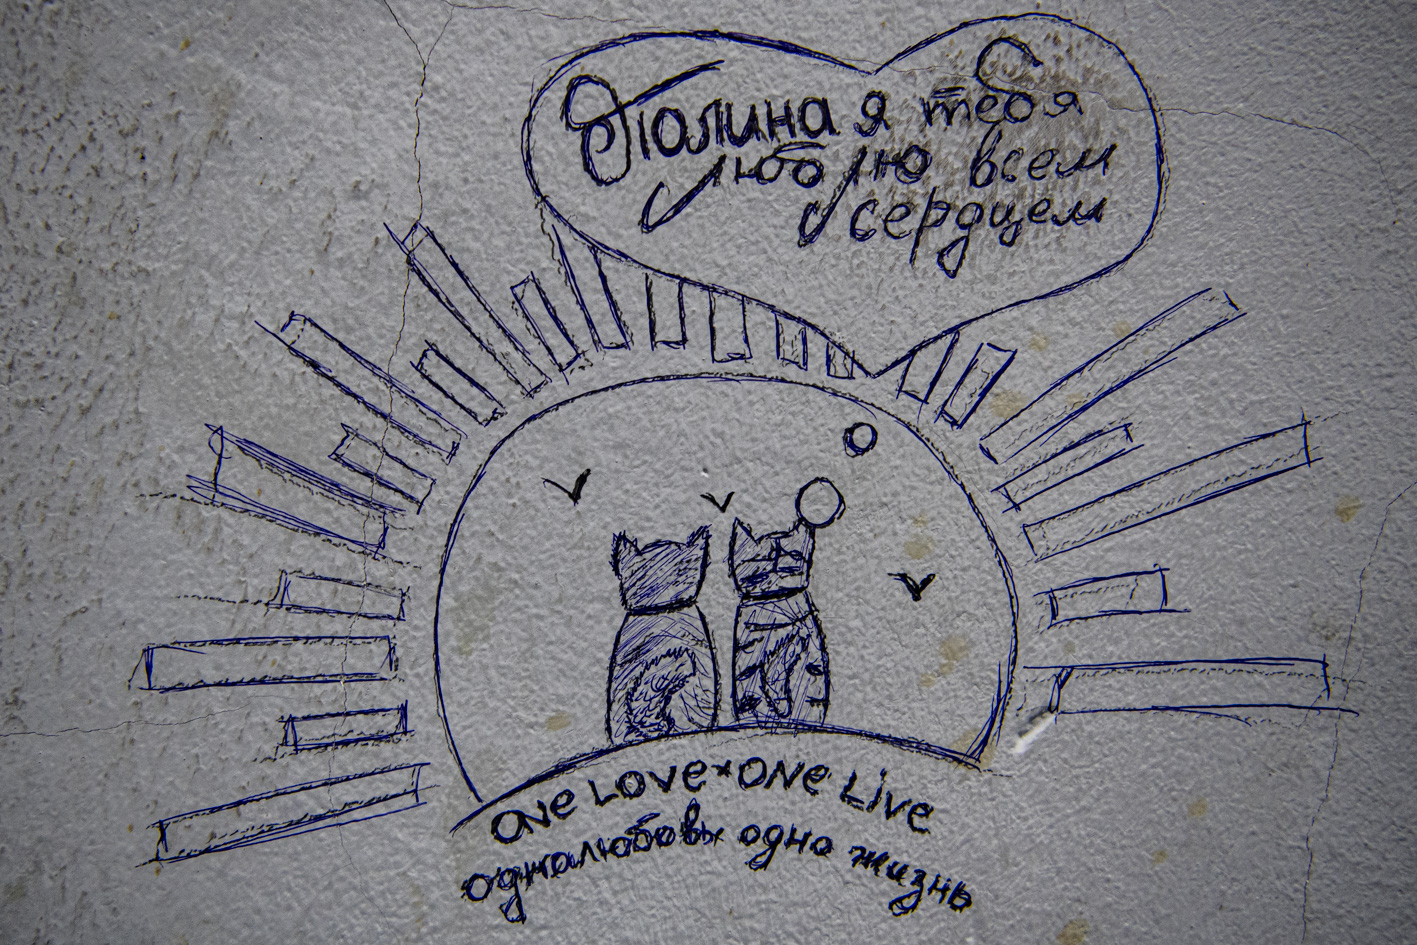 Полина я тебя
люблю всем
сердцем
ONE LOVE*ONE LIVE
одналюбовь одно жизнь